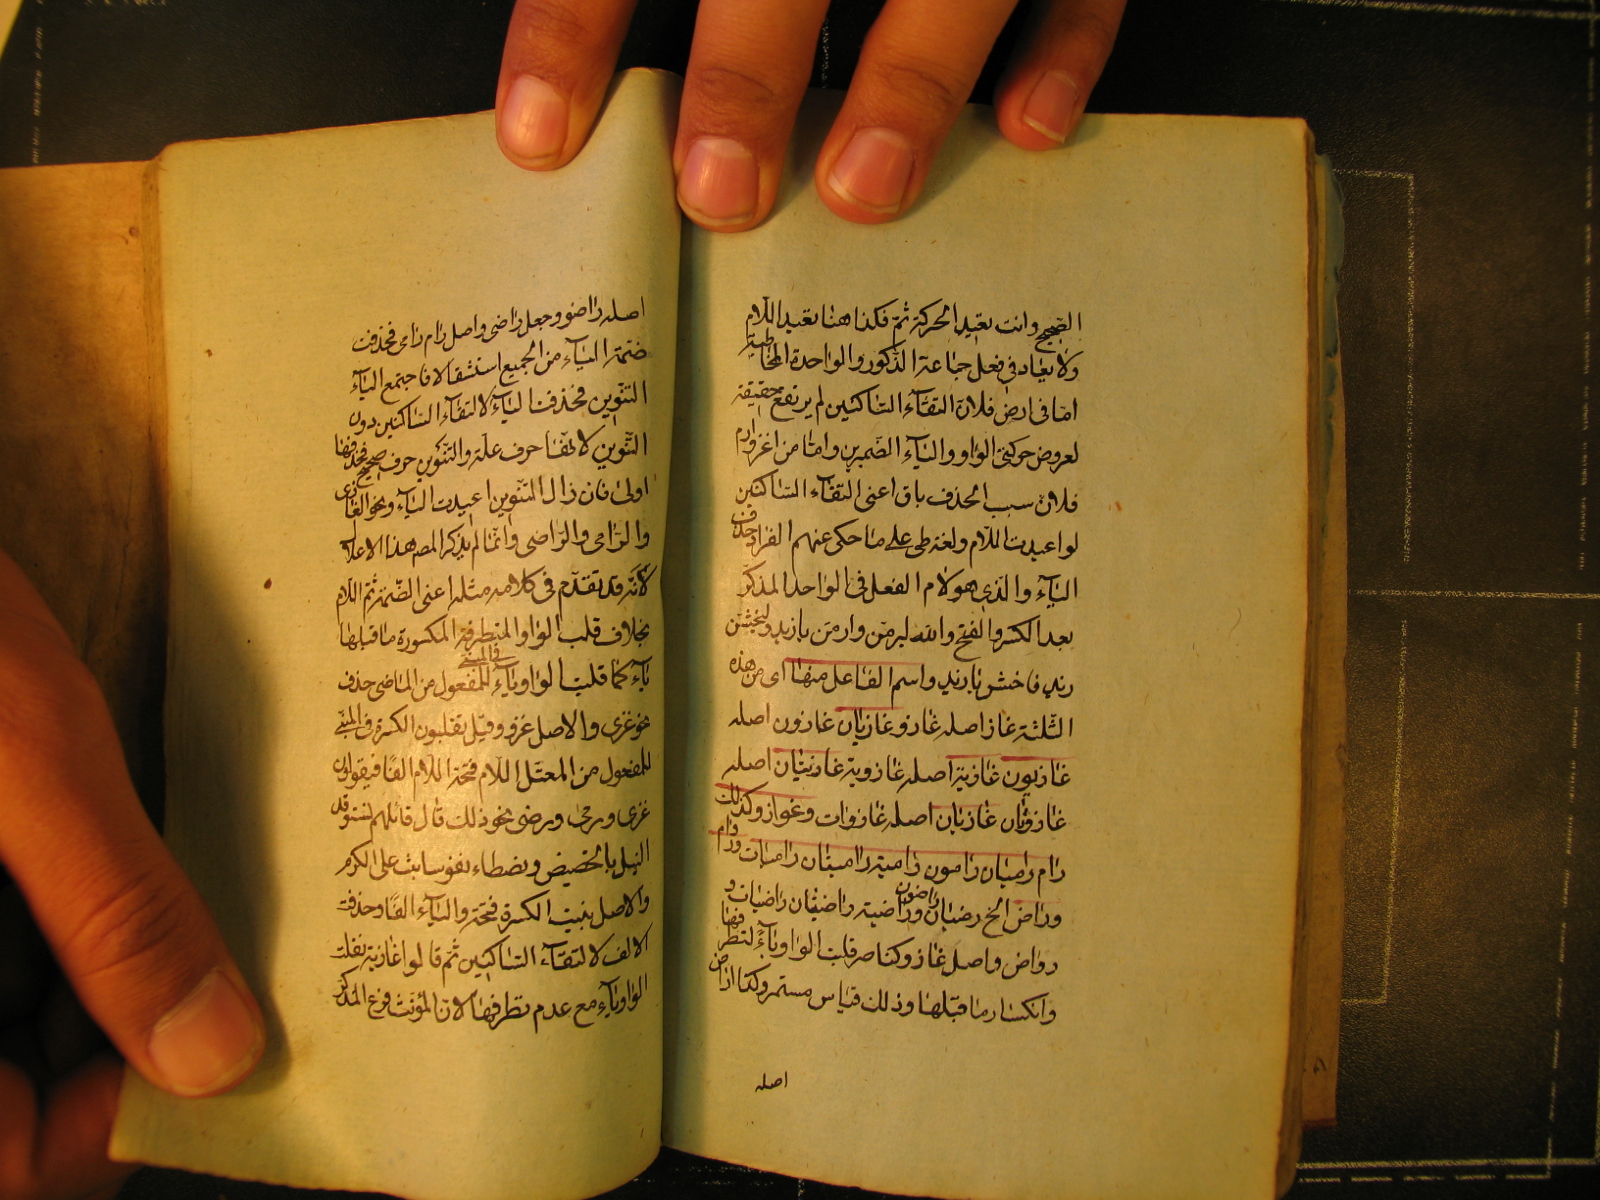 الصحيح وانت تعيد الحركة ثمّ فكذا هنا تعيد اللّام
ولا يعاد في فعل جماعة الذّكور والواحدة المخاطبة
امّا فى ارض فلانّ التقاء السّاكنين لم يرتفع حقيقة
لعروض حركتى الواو والياء الضّميرين وامّا من اغز وارم
فلانّ سبب الحذف باق اعنى التقاء السّاكنين
لو اعيدت اللّام ولغة طى على ما حكى عنهم الفرّاء حذف
الياء والّذي هو لام الفعل فى الواحد المذكّر
بعد الكسر والفتح والله ليرمنّ وارمنّ يا زيد وليخشنّ
زيد فاخشنّ يا زيد واسم الفاعل منها اى من هذه
الثّلثة غاز اصله غازو غازيان غازون اصله
غازيون غازية اصله غازوية غازيتان اصله
غازوتان غازيان اصله غازوات وغواز وكذلك
رام راميان رامون رامية راميتان راميات ورام
وراض الخ رضيان وراضون راضية راضيتان راضيات و
رواض واصل غاز وكناصر قلبت الواو ياءً لتطرّفها
وانكسار ما قبلها وذلك قياس مستمر وكذا راض
اصله
اصله راضو وجعل راضى واصل رام رامى فحذفت
ضمّة الياء من الجميع استثقالا فاجتمع الياء
التنوين فحذفت الياء لالتقاء السّاكنين دون
التّنوين لانّها حرف علّة والتّنوين حرف صحيح فحذفها
اولى فان زال التّنوين اعيدت الياء ونحو الغازى
والرّامى والرّاضى وانّما لم يذكر المص هذا الاعلال
لانّه قد تقدّم فى كلامه مثله اعنى الضّمة ثمّ اللّام
بخلاف قلب الواو المتطرفة المكسورة ما قبلها
ياء كما قلبت الواو ياء فى المبنى للمفعول من الماضى حذف
نحو غزى والاصل غزو وقيل يقلبون الكسرة فى المبنّى
للمفعول من المعتل اللّام فتحة اللام الفا فيقولون
غزى ورمى ورضى نحو ذلك قال قائلهم نستوقد
النبل بالحضيض ونصطاد نفوسا بنت على الكرم
والاصل بنيت الكسرة فتحة والياء الفا وحذفت
الالف لالتقاء السّاكنين ثم قالوا غازية بقلب
الواو ياء مع عدم تطرفها لانّ المؤنّث فرع المذكّر